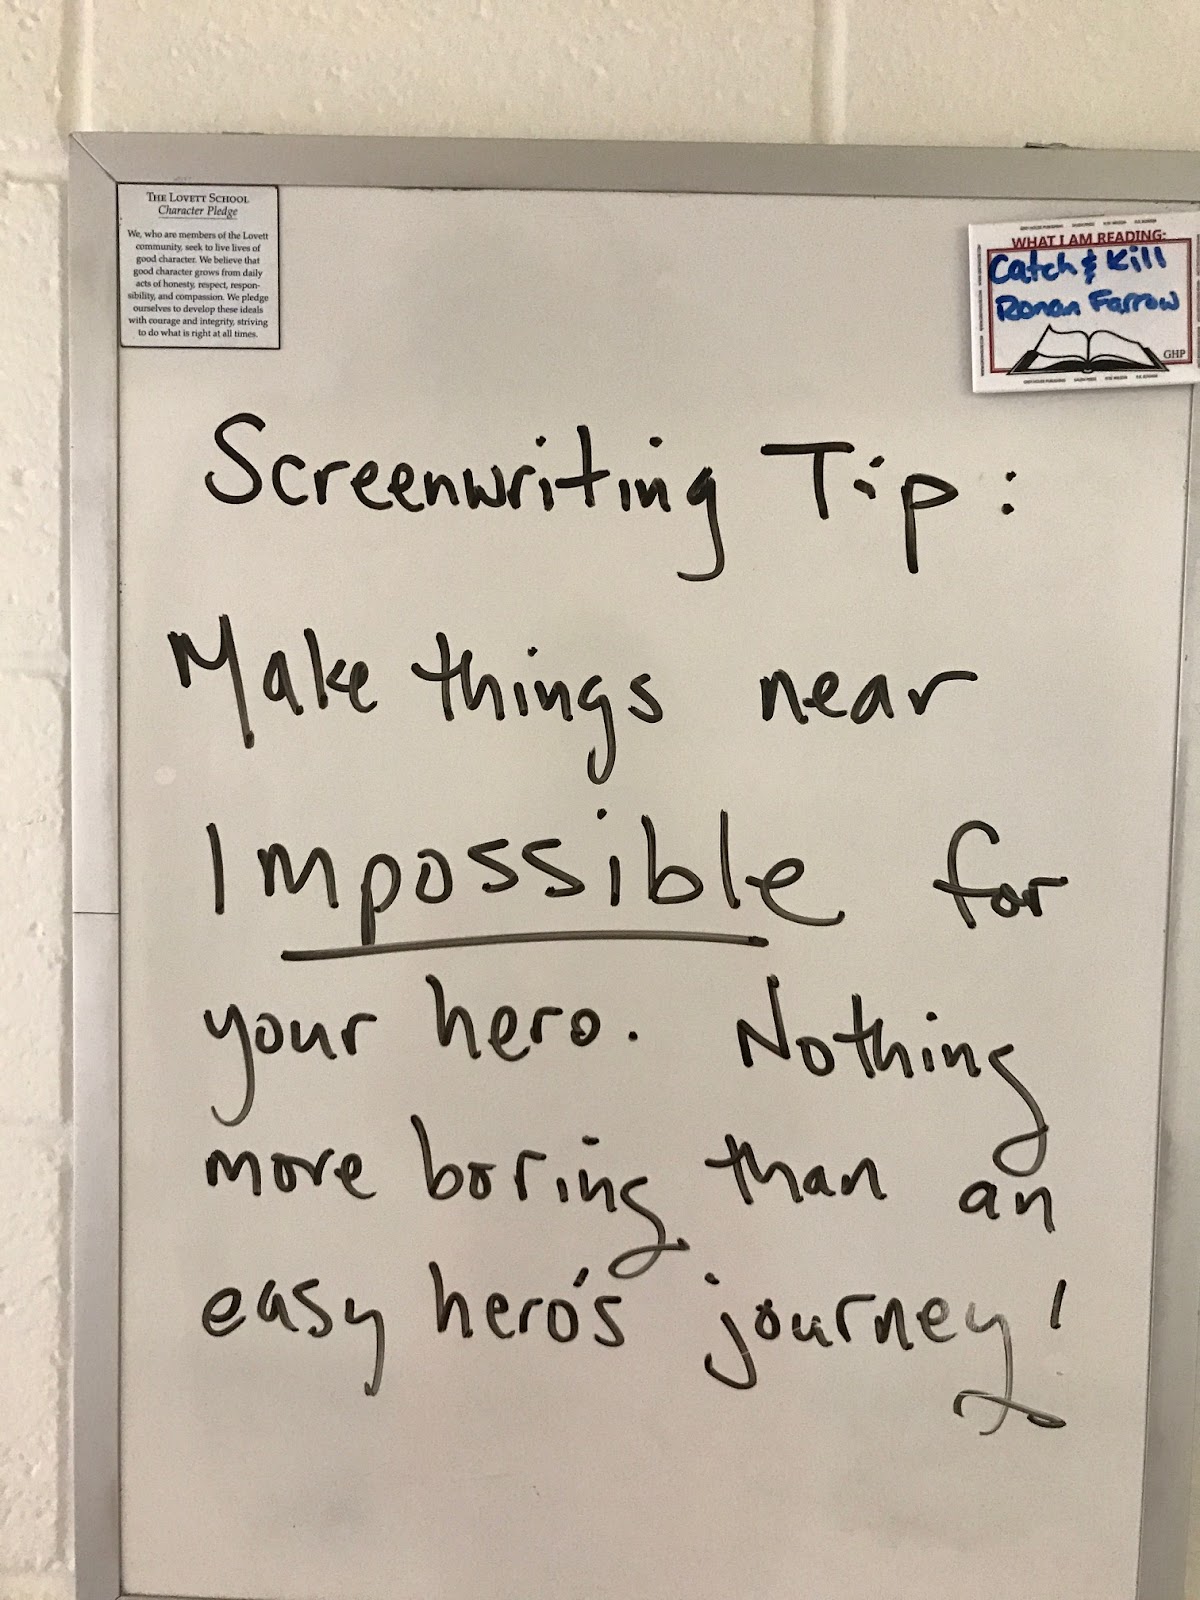 THE LOVETT SCHOOL
Character Pledge
We, who are members of the Lovett
community, seek to live lives of
good character. We believe that
good character grows from daily
acts of honesty, respect, respon-
sibility, and compassion. We pledge
ourselves to develop these ideals
with courage and integrity, striving
to do what is right at all times.
WHAT I AM READING:
Catch & Kill
Ronan Farrow
GHP
Screenwriting Tip:
Make things near
Impossible for
your hero. Nothing
more boring than an
easy hero's journey!